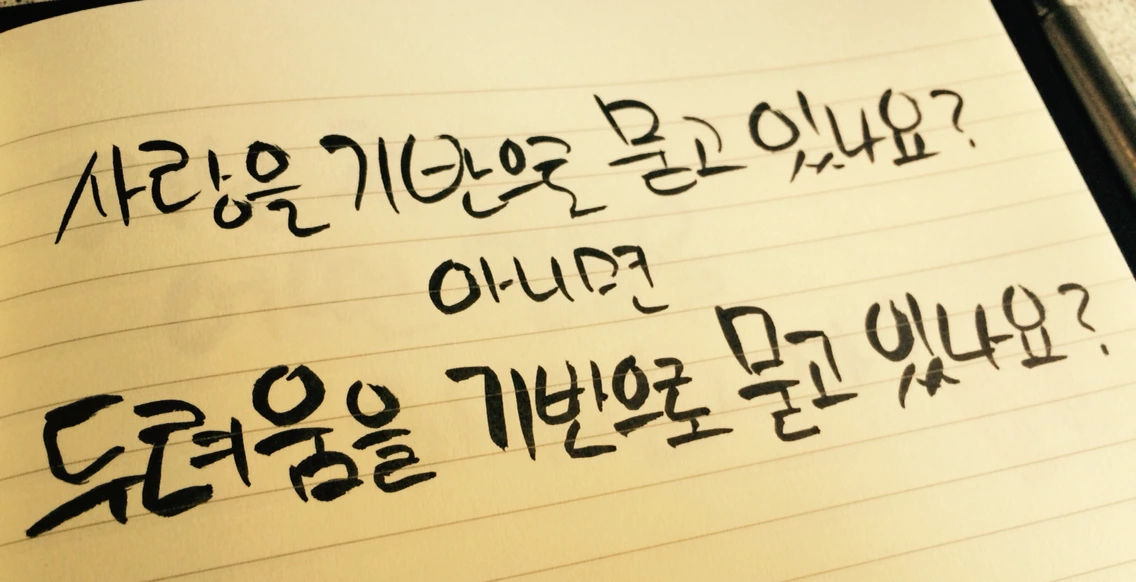 사랑을 기반으로 묻고 있나요?
아니면
두려움을 기반으로 묻고 있나요?